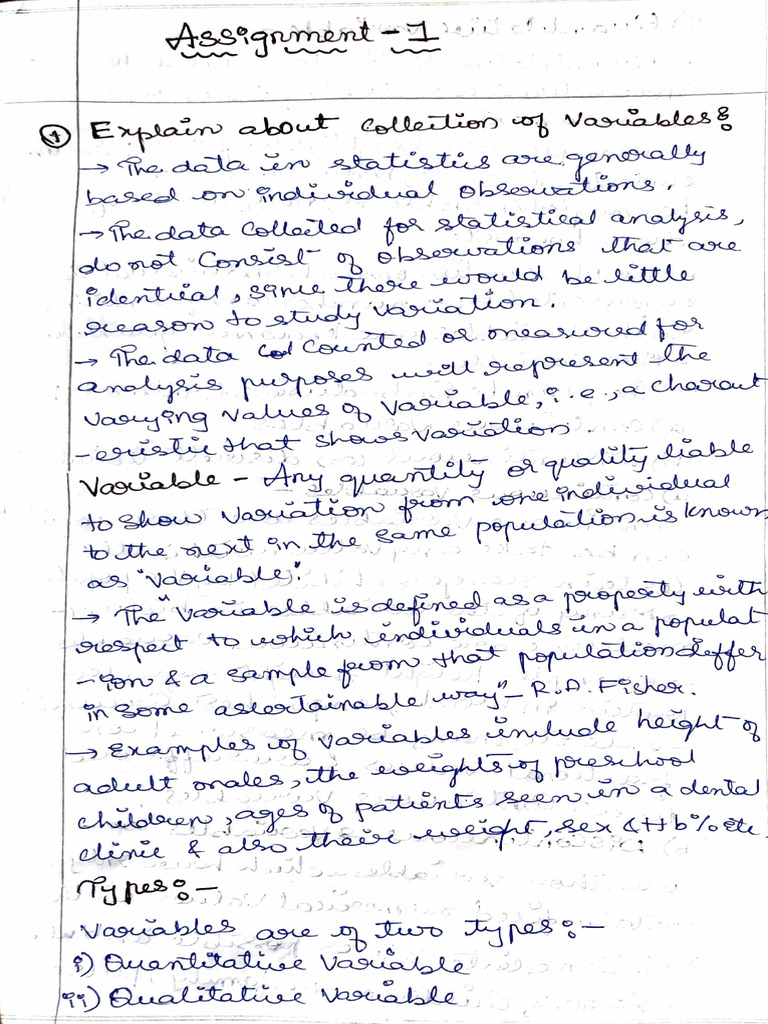 Assignment - 1
① Explain about Collection of Variables:
→ The data in statistics are generally
based on individual observations.
→ The data Collected for statistical analysis,
do not Consist of observations that are
identical, since there would be little
reason to study variation.
→ The data Counted or measured for
analysis purposes will represent the
varying values of variable, i.e., a charact
-eristic that shows variation.
Variable - Any quantity or quality liable
to show variation from one individual
to the next in the same population is known
as "variable".
→ The "variable is defined as a property with
respect to which individuals in a populat
-ion & a sample from that population differ
in some ascertainable way" - R.A. Fisher.
→ Examples of variables include height of
adult males, the weights of preschool
children, ages of patients seen in a dental
clinic & also their weight, sex & Hb% etc
Types:-
Variables are of two types:-
i) Quantitative Variable
ii) Qualitative Variable